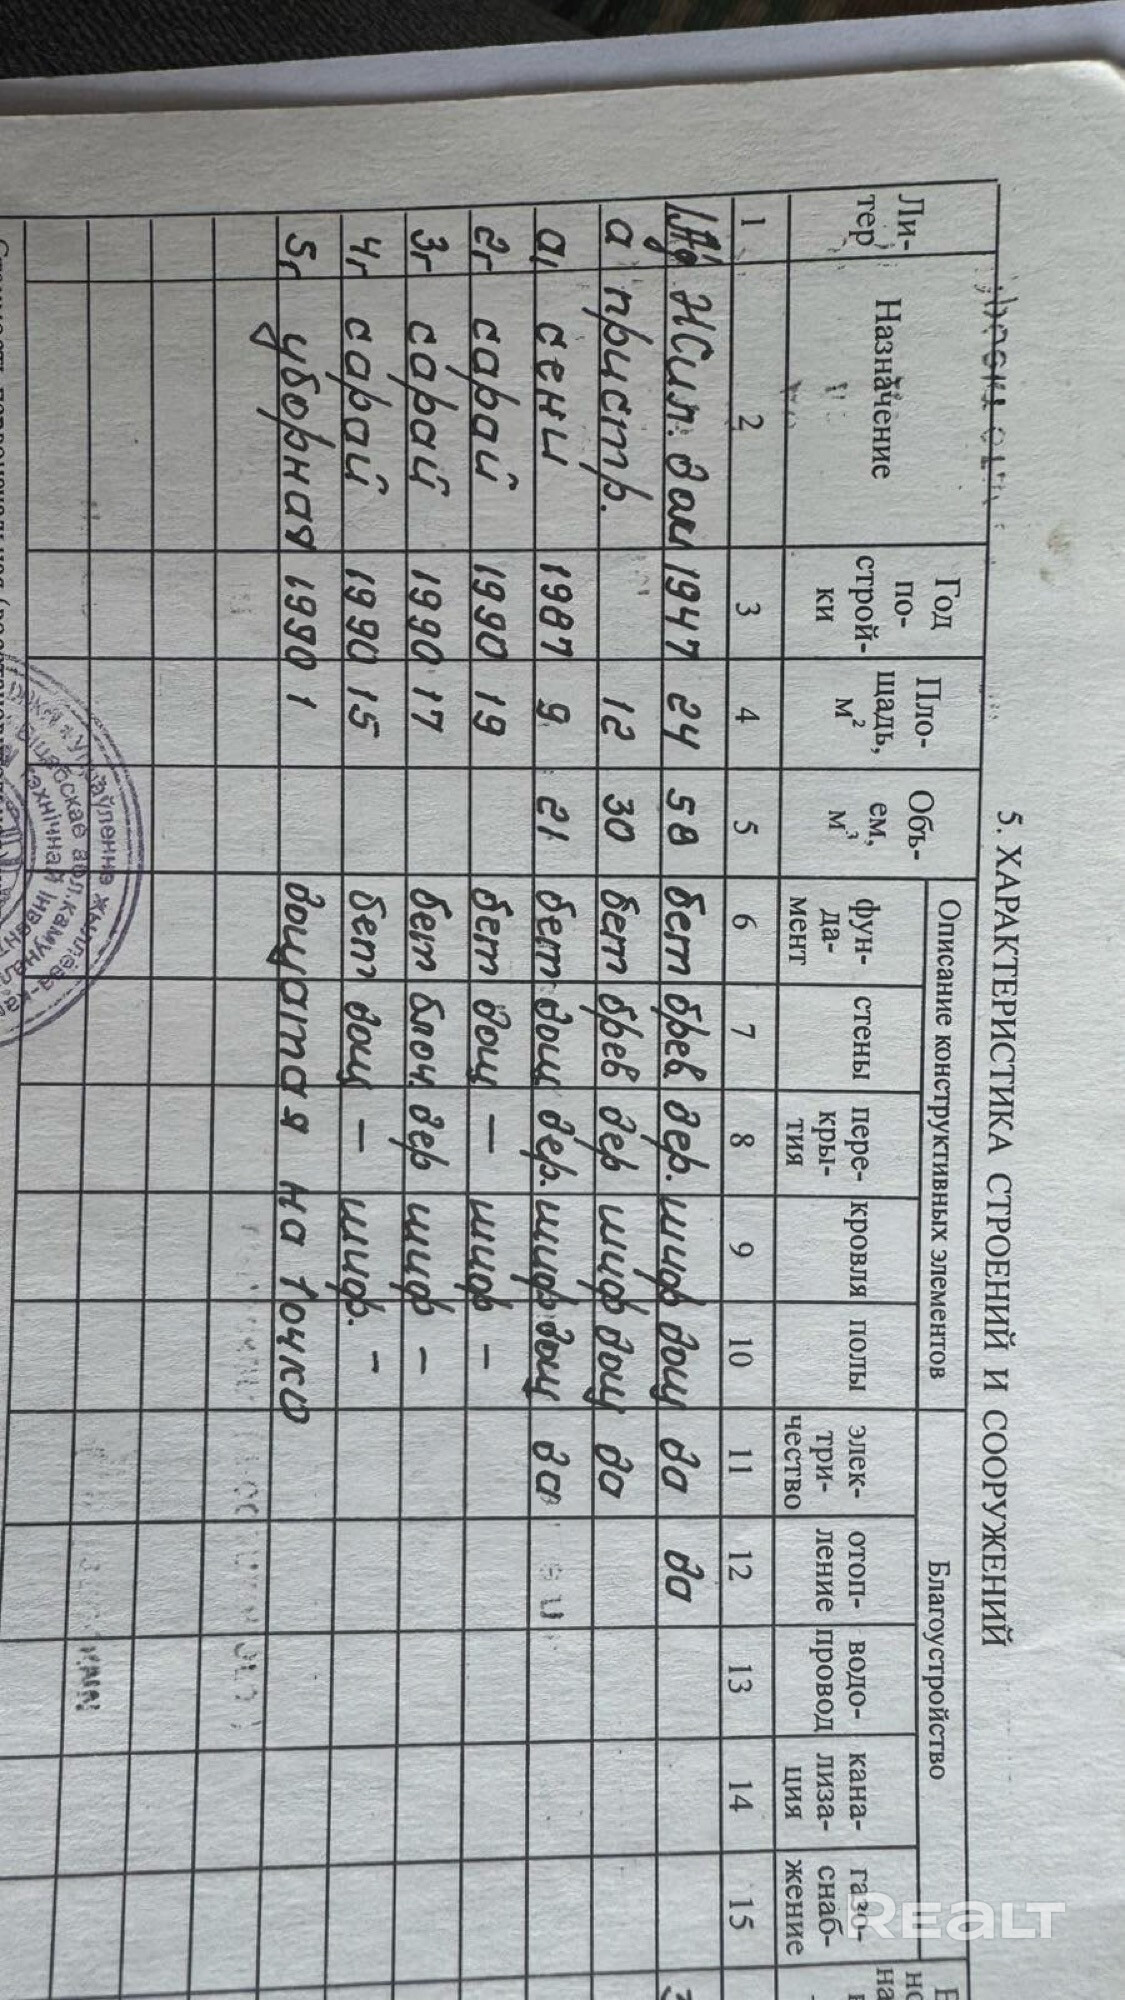 5. ХАРАКТЕРИСТИКА СТРОЕНИЙ И СООРУЖЕНИЙ
Ли-
тер
Назначение
Год
по-
строй-
ки
Пло-
щадь,
м²
Объ-
ем,
м³
Описание конструктивных элементов
фун-
да-
мент
стены
пере-
кры-
тия
кровля
полы
Благоустройство
элек-
три-
чество
отоп-
ление
водо-
провод
кана-
лиза-
ция
газо-
снаб-
жение
1 2 3 4 5 6 7 8 9 10 11 12 13 14 15
Жил. дом 1947 24 58 бет брев дер. шиф дощ да да
а пристр. 12 30 бет брев дер шиф дощ да
а₁ сени 1987 9 21 бет дощ дер. шиф дощ да
2г сарай 1990 19 бет дощ – шиф –
3г сарай 1990 17 бет блоч. дер шиф –
4г сарай 1990 15 бет дощ – шиф. –
5г уборная 1990 1 дощатая на 1 очко
REALT